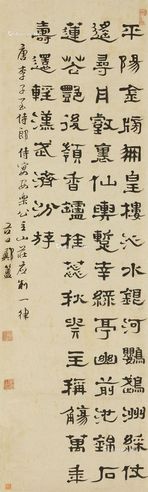 平陽金牓鳳皇樓沁水銀河鸚鵡洲綵仗
遙尋丹壑裏仙輿暫幸綠亭幽前池錦石
蓮花艷後嶺香鑪桂蕊秋貴主稱觴萬年
壽還輕漢武濟汾游
唐李子至侍郎侍宴安樂公主山莊應制一律
谷口鄭簠